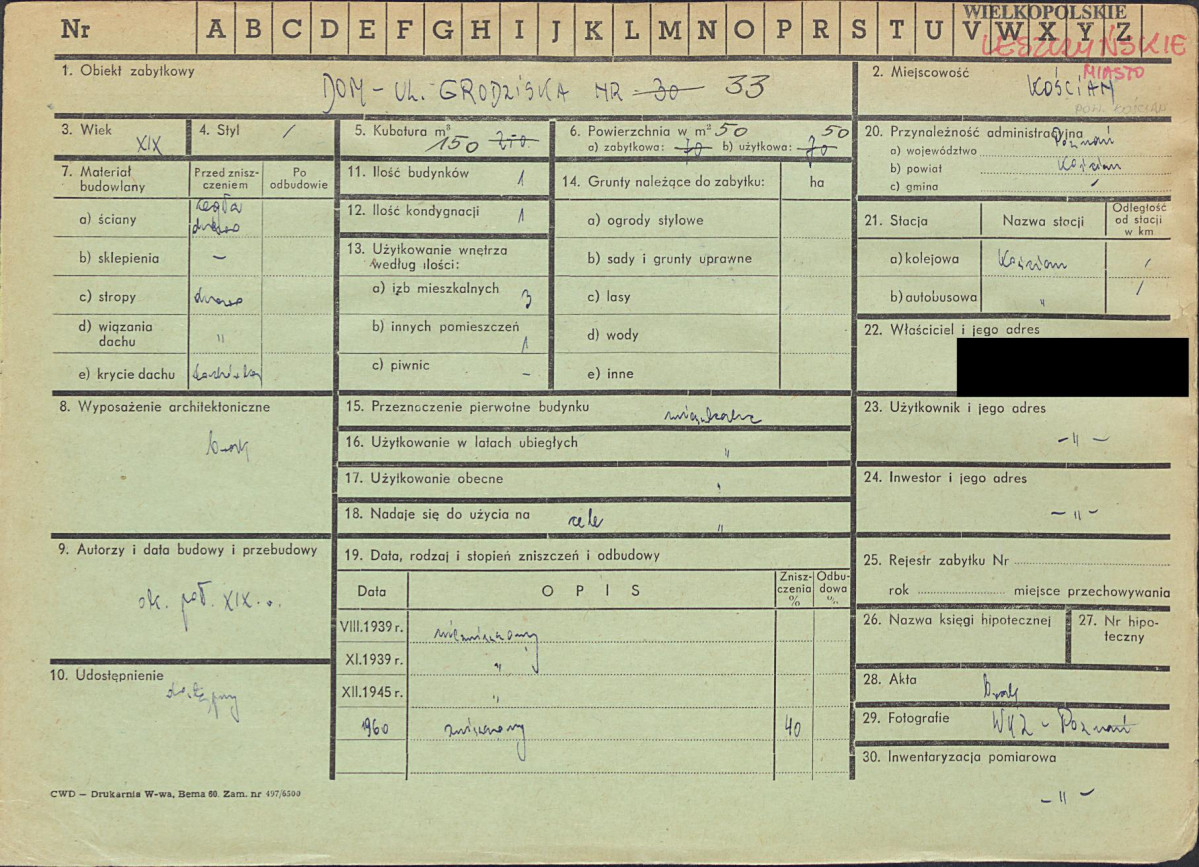 Nr A B C D E F G H I J K L M N O P R S T U V W X Y Z
WIELKOPOLSKIE
LESZCZYŃSKIE
MIASTO
1. Obiekt zabytkowy
DOM – UL. GRODZISKA NR 30 33
2. Miejscowość
KOŚCIAN
POW. KOŚCIAN
3. Wiek
XIX
4. Styl
/
5. Kubatura m³
150
6. Powierzchnia w m² 50 50
a) zabytkowa: 70 b) użytkowa: 70
20. Przynależność administracyjna
a) województwo Poznań
b) powiat Kościan
c) gmina
7. Materiał budowlany
Przed zniszczeniem
Po odbudowie
a) ściany cegła drewno
b) sklepienia –
c) stropy drewno
d) wiązania dachu "
e) krycie dachu
11. Ilość budynków 1
12. Ilość kondygnacji 1
13. Użytkowanie wnętrza według ilości:
a) izb mieszkalnych 3
b) innych pomieszczeń 1
c) piwnic –
14. Grunty należące do zabytku: ha
a) ogrody stylowe
b) sady i grunty uprawne
c) lasy
d) wody
e) inne
21. Stacja
Nazwa stacji
Odległość od stacji w km
a) kolejowa Kościan /
b) autobusowa " /
22. Właściciel i jego adres
8. Wyposażenie architektoniczne
brak
15. Przeznaczenie pierwotne budynku mieszkalne
16. Użytkowanie w latach ubiegłych "
17. Użytkowanie obecne "
18. Nadaje się do użycia na cele "
23. Użytkownik i jego adres
– " –
24. Inwestor i jego adres
– " –
9. Autorzy i data budowy i przebudowy
ok. poł. XIX w.
19. Data, rodzaj i stopień zniszczeń i odbudowy
Data
OPIS
Zniszczenia %
Odbudowa %
VIII.1939 r. niezniszczony
XI.1939 r. "
XII.1945 r. "
1960 zniszczony 40
25. Rejestr zabytku Nr
rok miejsce przechowywania
26. Nazwa księgi hipotecznej
27. Nr hipoteczny
10. Udostępnienie
dostępny
28. Akta brak
29. Fotografie WKZ – Poznań
30. Inwentaryzacja pomiarowa
– " –
CWD – Drukarnia W-wa, Bema 60. Zam. nr 497/6500